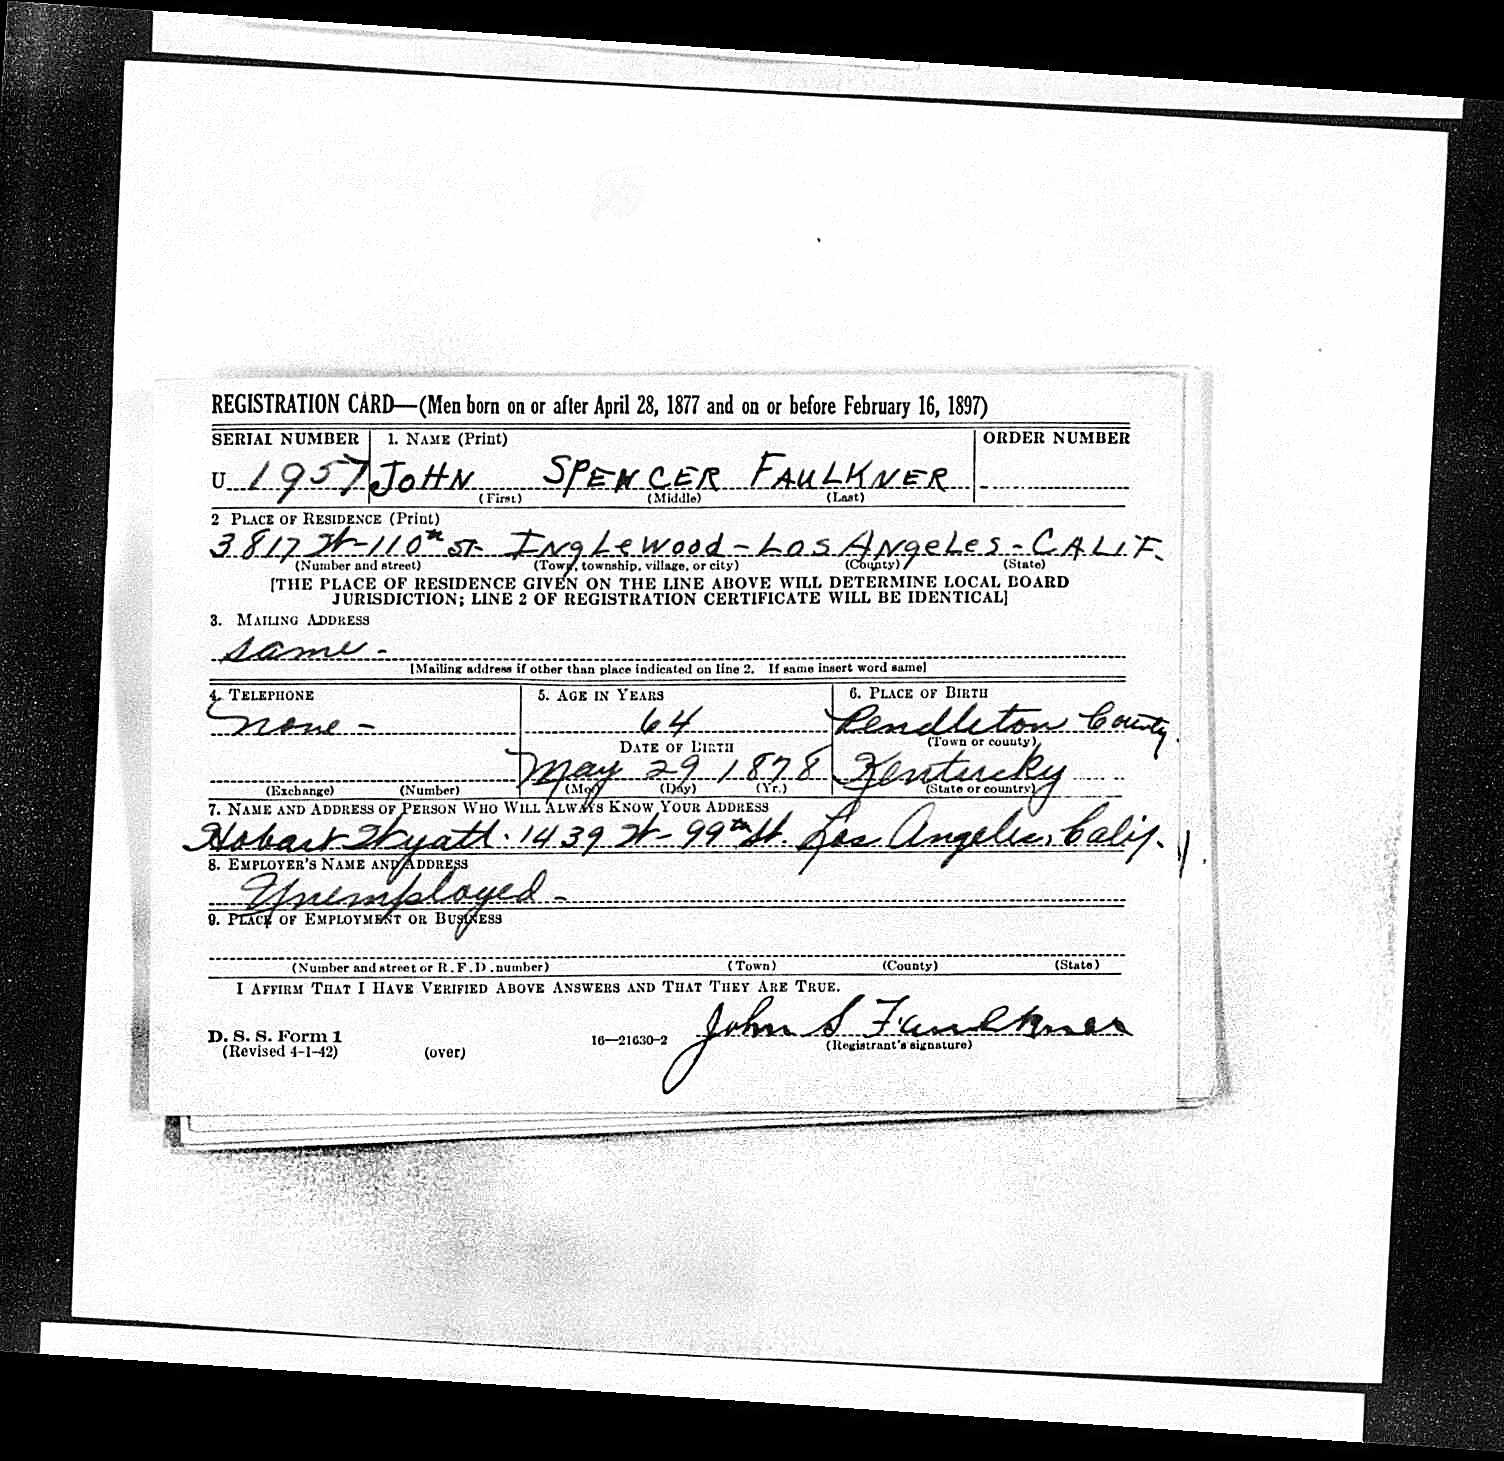 REGISTRATION CARD—(Men born on or after April 28, 1877 and on or before February 16, 1897)
SERIAL NUMBER 1. NAME (Print) ORDER NUMBER
U 1957 JOHN SPENCER FAULKNER
(First) (Middle) (Last)
2 PLACE OF RESIDENCE (Print)
3817 W-110th ST- INgLewood-Los ANgeLes-CALIF.
(Number and street) (Town, township, village, or city) (County) (State)
[THE PLACE OF RESIDENCE GIVEN ON THE LINE ABOVE WILL DETERMINE LOCAL BOARD
JURISDICTION; LINE 2 OF REGISTRATION CERTIFICATE WILL BE IDENTICAL]
3. MAILING ADDRESS
same -
[Mailing address if other than place indicated on line 2. If same insert word same]
4. TELEPHONE 5. AGE IN YEARS 6. PLACE OF BIRTH
none - 64 Pendleton County.
DATE OF BIRTH (Town or county)
May 29 1878 Kentucky
(Exchange) (Number) (Mo.) (Day) (Yr.) (State or country)
7. NAME AND ADDRESS OF PERSON WHO WILL ALWAYS KNOW YOUR ADDRESS
Hobart Wyatt. 1439 W- 99th St. Los Angeles, Calif.
8. EMPLOYER'S NAME AND ADDRESS
Unemployed -
9. PLACE OF EMPLOYMENT OR BUSINESS
(Number and street or R. F. D. number) (Town) (County) (State)
I AFFIRM THAT I HAVE VERIFIED ABOVE ANSWERS AND THAT THEY ARE TRUE.
D. S. S. Form 1 16—21630-2 John S Faulkner
(Revised 4-1-42) (over) (Registrant's signature)